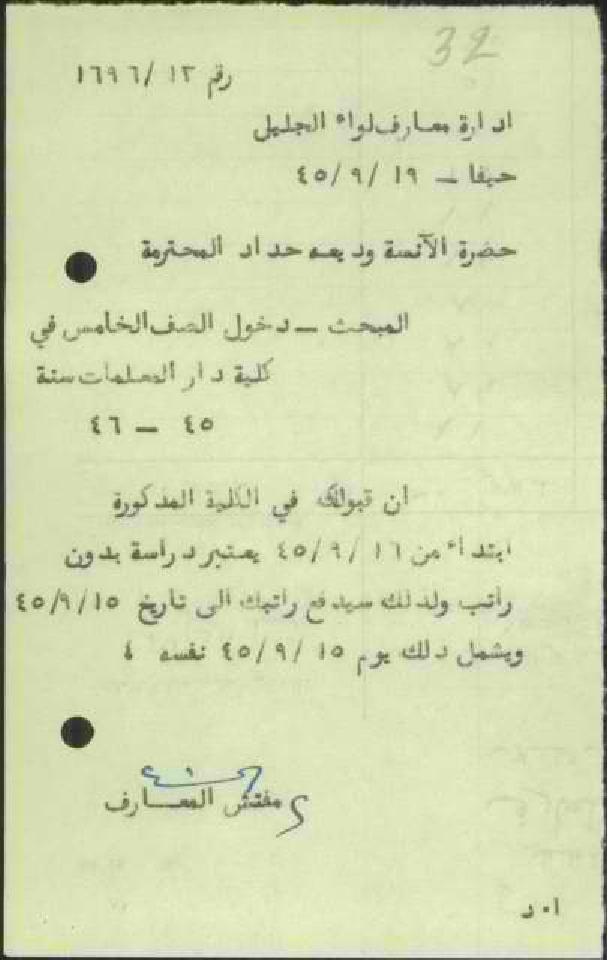 32
رقم ١٣ /١٦٩٦
ادارة معارف لواء الجليل
حيفا – ١٩ /٩ /٤٥
حضرة الآنسة وديعه حداد المحترمة
المبحث – دخول الصف الخامس في
كلية دار المعلمات سنة
٤٥ – ٤٦
أن قبولك في الكلية المذكورة
ابتداء من ١٦ /٤٥/٩ يعتبر دراسة بدون
راتب ولذلك سيدفع راتبك الى تاريخ ٤٥/٩/١٥
ويشمل ذلك يوم ١٥ /٩ /٤٥ نفسه ٤
مفتش المعارف
ا٠ د